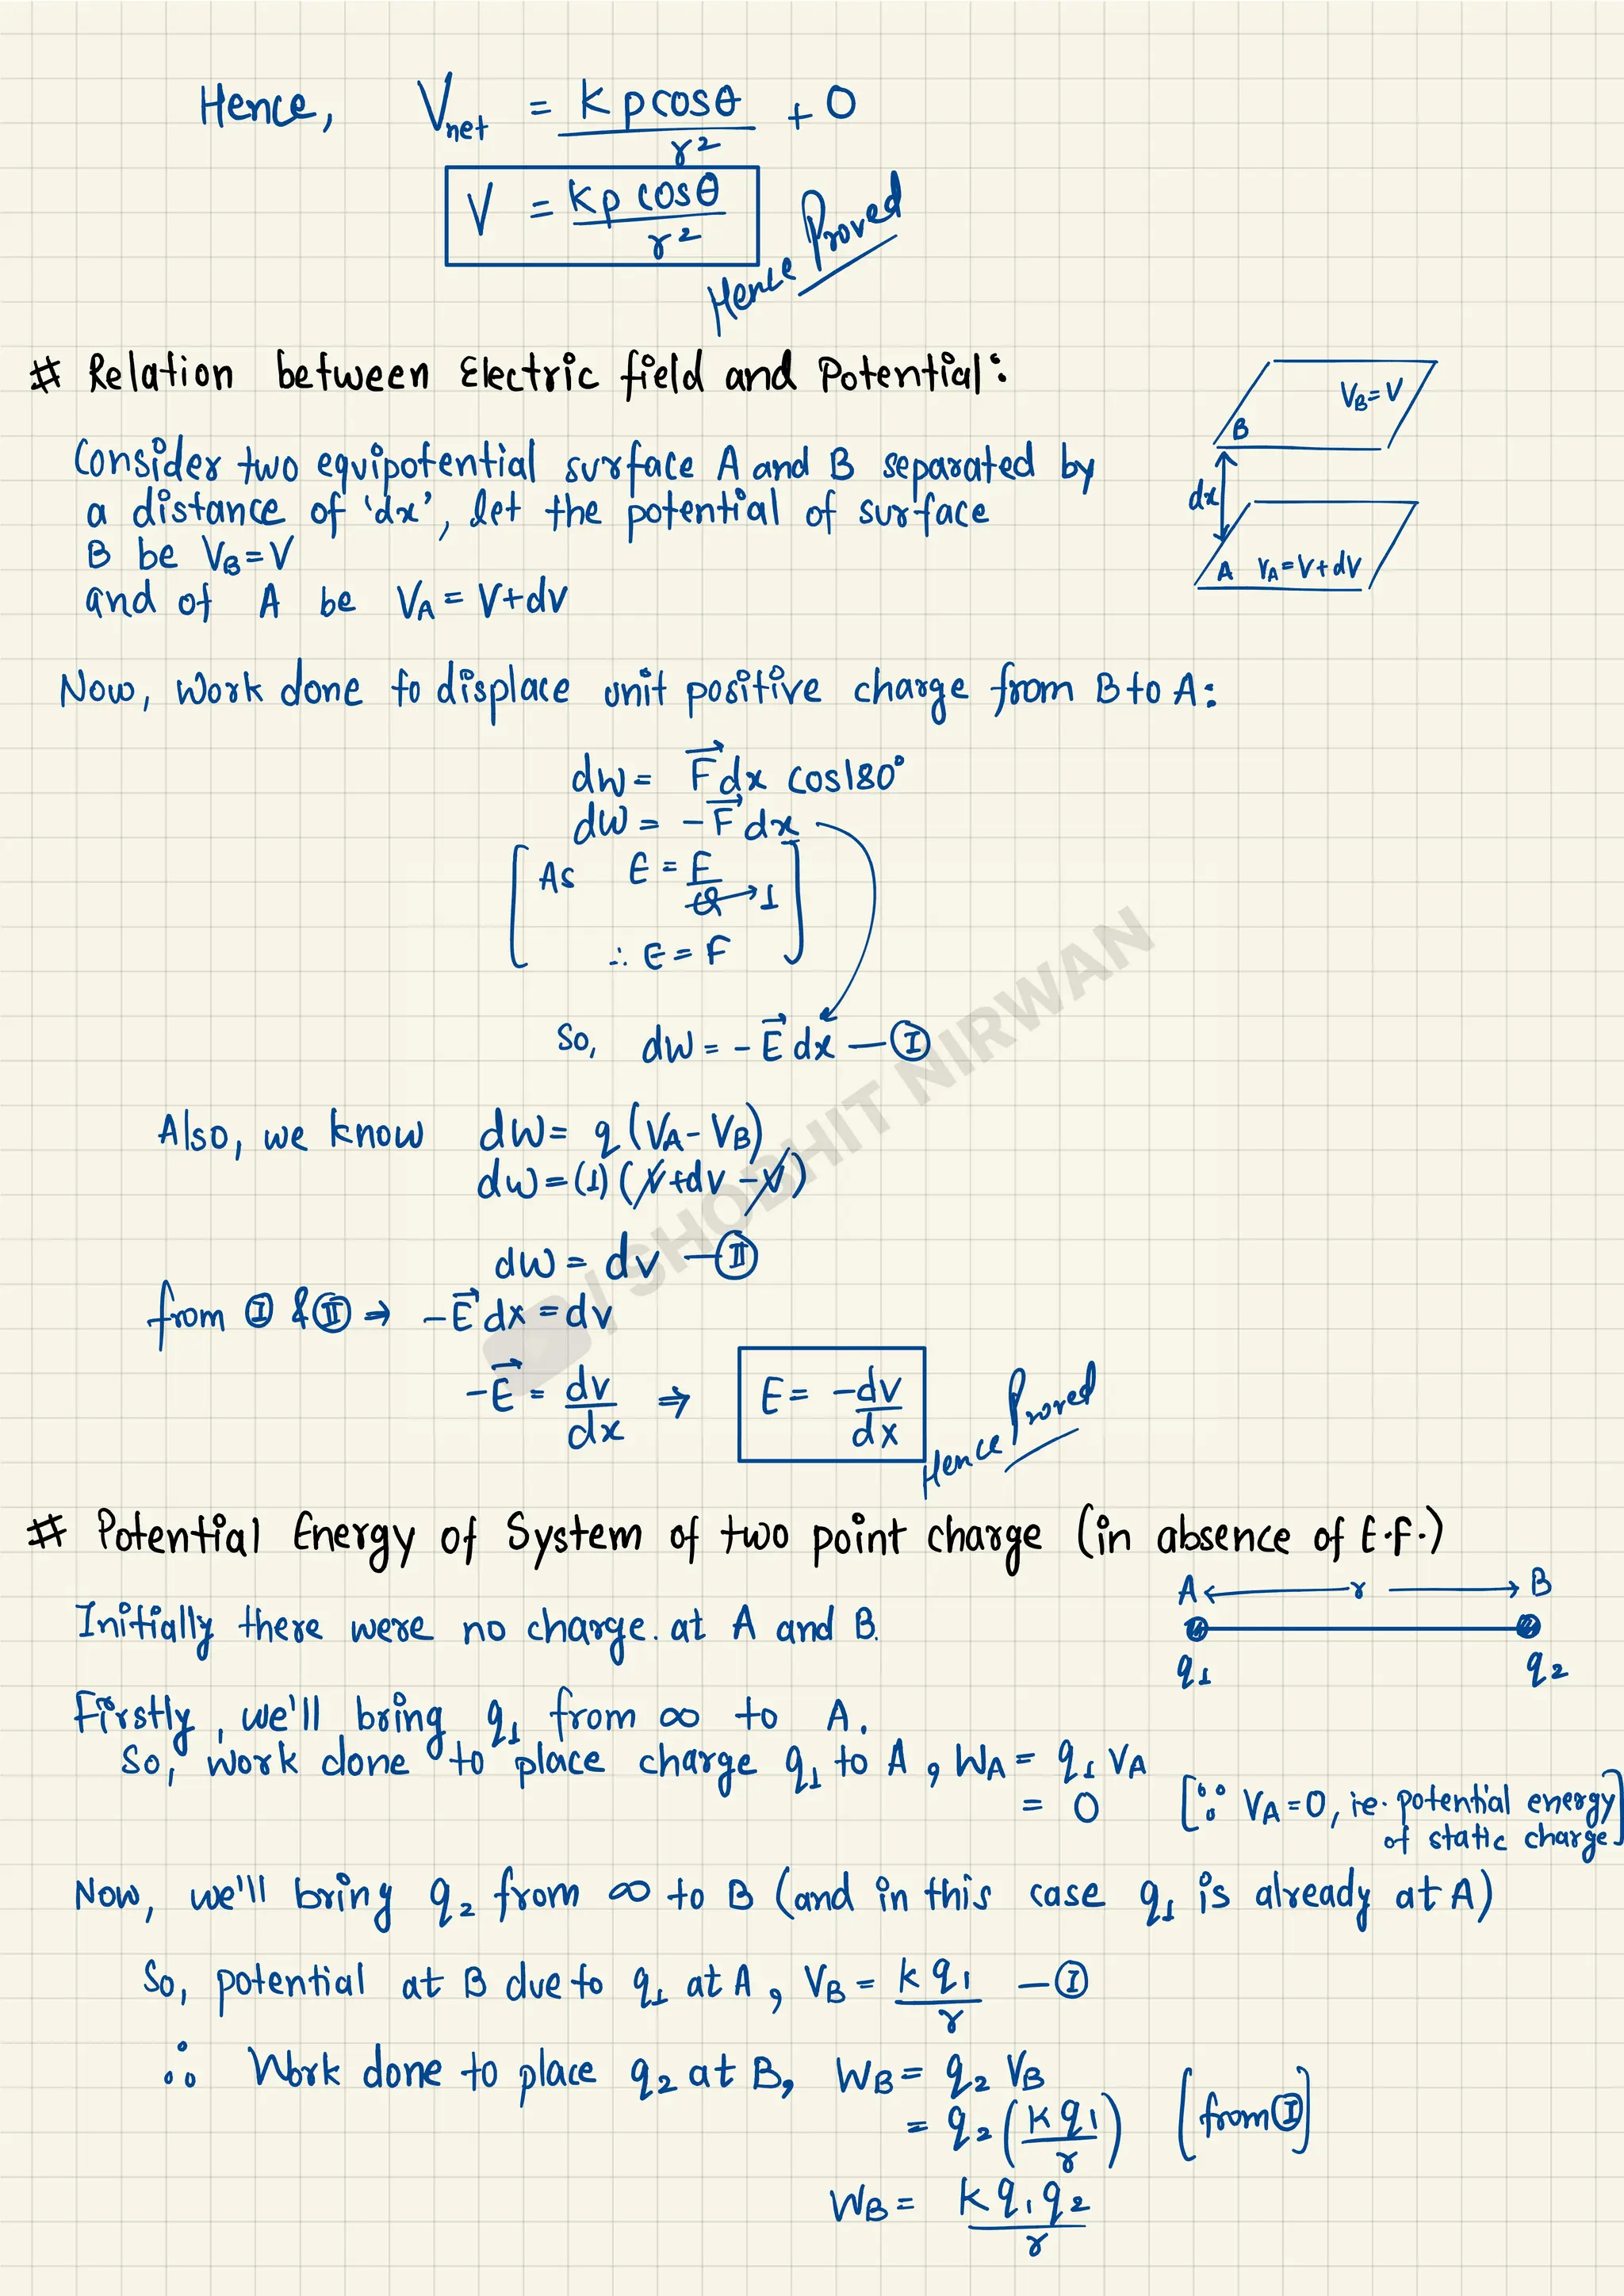 Hence, Vnet = kpcosθ/r² + 0
V = kp cosθ/r²
Hence Proved
# Relation between Electric field and Potential:
VB=V
B
Consider two equipotential surface A and B separated by
dx
a distance of 'dx', let the potential of surface
B be VB=V
A VA=V+dV
and of A be VA = V+dv
Now, work done to displace unit positive charge from B to A:
dw = F⃗dx cos180°
dw = -F⃗ dx
[As E = F/Q → 1
∴ E = F]
So, dw = -E⃗ dx —Ⓘ
Also, we know dw = q(VA - VB)
dw = (1)(V+dv-V)
dw = dv —Ⅱ
from Ⓘ & Ⅱ ⇒ -E⃗ dx = dv
-E⃗ = dv/dx ⇒ E = -dv/dx
Hence Proved
/ SHOBHIT NIRWAN
# Potential Energy of System of two point charge (in absence of E.F.)
A ← r → B
Initially there were no charge. at A and B.
q1 q2
Firstly, we'll bring q1 from ∞ to A.
So, work done to place charge q1 to A, WA = q1 VA
= 0 [∵ VA=0, i.e. potential energy
of static charge]
Now, we'll bring q2 from ∞ to B (and in this case q1 is already at A)
So, potential at B due to q1 at A, VB = kq1/r —Ⓘ
∴ Work done to place q2 at B, WB = q2 VB
= q2(kq1/r) [from Ⓘ]
WB = kq1q2/r